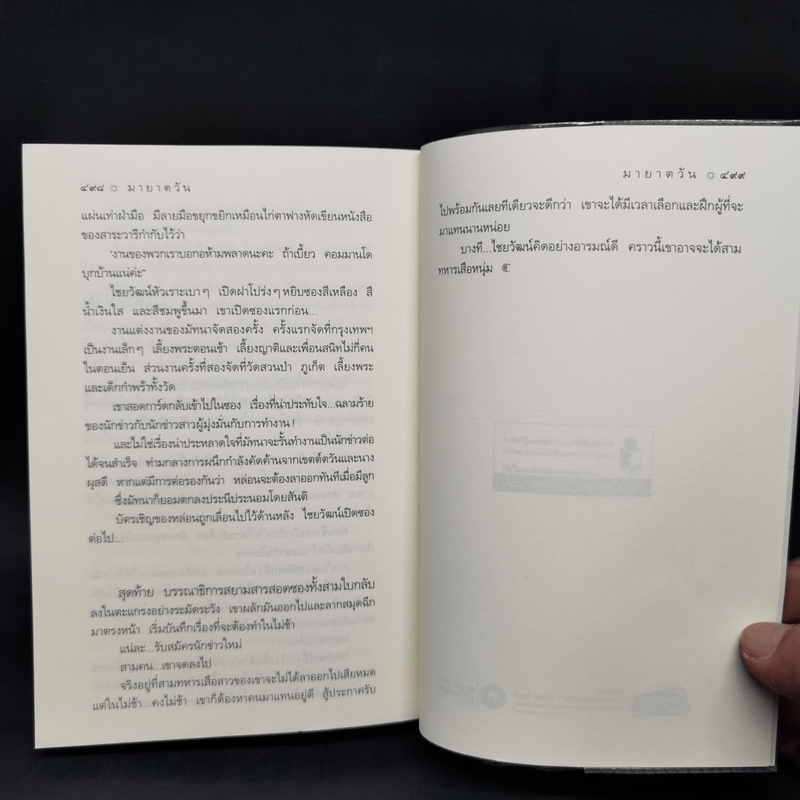 ๔๙๘ ๐ มายาตวัน
แผ่นเท่าฝ่ามือ มีลายมือขยุกขยิกเหมือนไก่ตาฟางหัดเขียนหนังสือ
ของสาระวารีกำกับไว้ว่า
"งานของพวกเราบอกอห้ามพลาดนะคะ ถ้าเบี้ยว คอมมานโด
บุกบ้านแน่ค่ะ"
ไชยวัฒน์หัวเราะเบาๆ เปิดฝาโปร่งๆ หยิบซองสีเหลือง สี
น้ำเงินใส และสีชมพูขึ้นมา เขาเปิดซองแรกก่อน...
งานแต่งงานของมัทนาจัดสองครั้ง ครั้งแรกจัดที่กรุงเทพฯ
เป็นงานเล็กๆ เลี้ยงพระตอนเช้า เลี้ยงญาติและเพื่อนสนิทไม่กี่คน
ในตอนเย็น ส่วนงานครั้งที่สองจัดที่วัดสวนป่า ภูเก็ต เลี้ยงพระ
และเด็กกำพร้าทั้งวัด
เขาสอดการ์ดกลับเข้าไปในซอง เรื่องที่น่าประทับใจ...ฉลามร้าย
ของนักข่าวกับนักข่าวสาวผู้มุ่งมั่นกับการทำงาน!
และไม่ใช่เรื่องน่าประหลาดใจที่มัทนาจะรั้นทำงานเป็นนักข่าวต่อ
ได้จนสำเร็จ ท่ามกลางการผนึกกำลังคัดค้านจากเขตต์ตวันและนาง
ผุสดี หากแต่มีการต่อรองกันว่า หล่อนจะต้องลาออกทันทีเมื่อมีลูก
ซึ่งมัทนาก็ยอมตกลงประนีประนอมโดยสันติ
บัตรเชิญของหล่อนถูกเลื่อนไปไว้ด้านหลัง ไชยวัฒน์เปิดซอง
ต่อไป...
สุดท้าย บรรณาธิการสยามสารสอดซองทั้งสามใบกลับ
ลงในตะแกรงอย่างระมัดระวัง เขาผลักมันออกไปและลากสมุดฉีก
มาตรงหน้า เริ่มบันทึกเรื่องที่จะต้องทำในไม่ช้า
แน่ละ...รับสมัครนักข่าวใหม่
สามคน...เขาจดลงไป
จริงอยู่ที่สามทหารเสือสาวของเขาจะไม่ได้ลาออกไปเสียหมด
แต่ในไม่ช้า...คงไม่ช้า เขาก็ต้องหาคนมาแทนอยู่ดี สู้ประกาศรับ
มายาตวัน ๐ ๔๙๙
ไปพร้อมกันเลยทีเดียวจะดีกว่า เขาจะได้มีเวลาเลือกและฝึกผู้ที่จะ
มาแทนนานหน่อย
บางที...ไชยวัฒน์คิดอย่างอารมณ์ดี คราวนี้เขาอาจจะได้สาม
ทหารเสือหนุ่ม